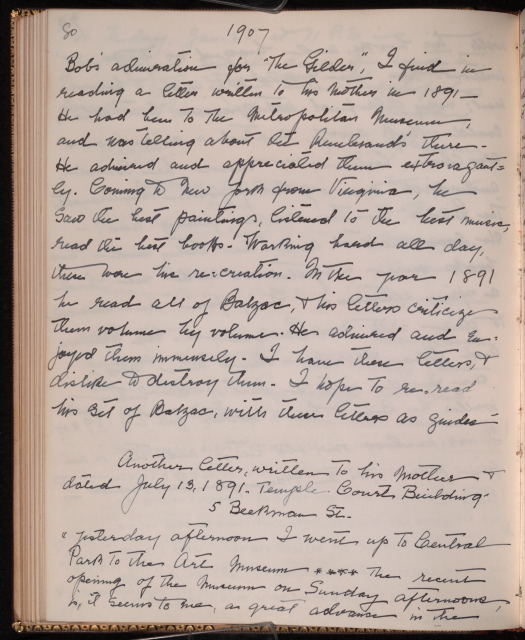 80 1907
Bob's admiration for "The Gilder", I find in
reading a letter written to his Mother in 1891—
He had been to the Metropolitan Museum,
and was telling about the Rembrandts there.
He admired and appreciated them extravagant=
ly. Coming to New York from Virginia, he
saw the best paintings, listened to the best music,
read the best books. Working hard all day,
these were his re-creation. In the year 1891
he read all of Balzac, & his letters criticize
them volume by volume. He admired and en-
joyed them immensely. I have these letters, &
dislike to destroy them. I hope to re-read
his set of Balzac, with these letters as guides—
Another letter, written to his Mother &
dated July 13, 1891. Temple Court Building.
5 Beekman St.
"Yesterday afternoon I went up to Central
Park to the Art Museum **** The recent
opening of the Museum on Sunday afternoons,
is, it seems to me, a great advance in the